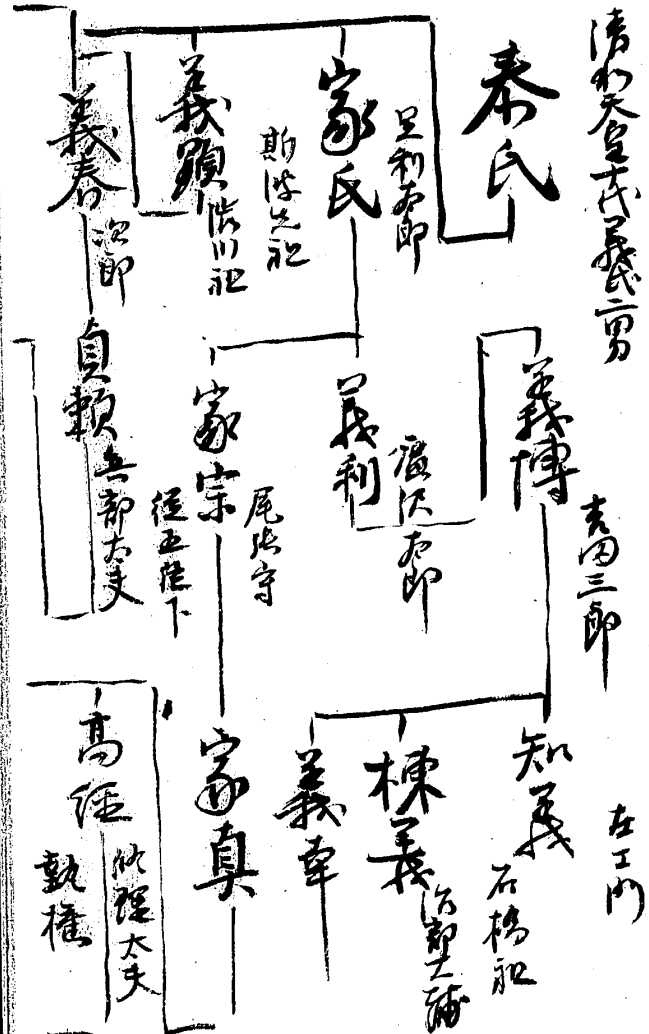 清和天皇十代義氏二男
泰氏
足利太郎
家氏
斯波先祖
義顕
渋川祖
義春
次郎
義博
吉田三郎
義利
廣沢太郎
家宗
尾張守
従五位下
貞頼
兵部太夫
左エ門
知義
石橋祖
棟義
治部大輔
義幸
家真
高経
修理太夫
執権